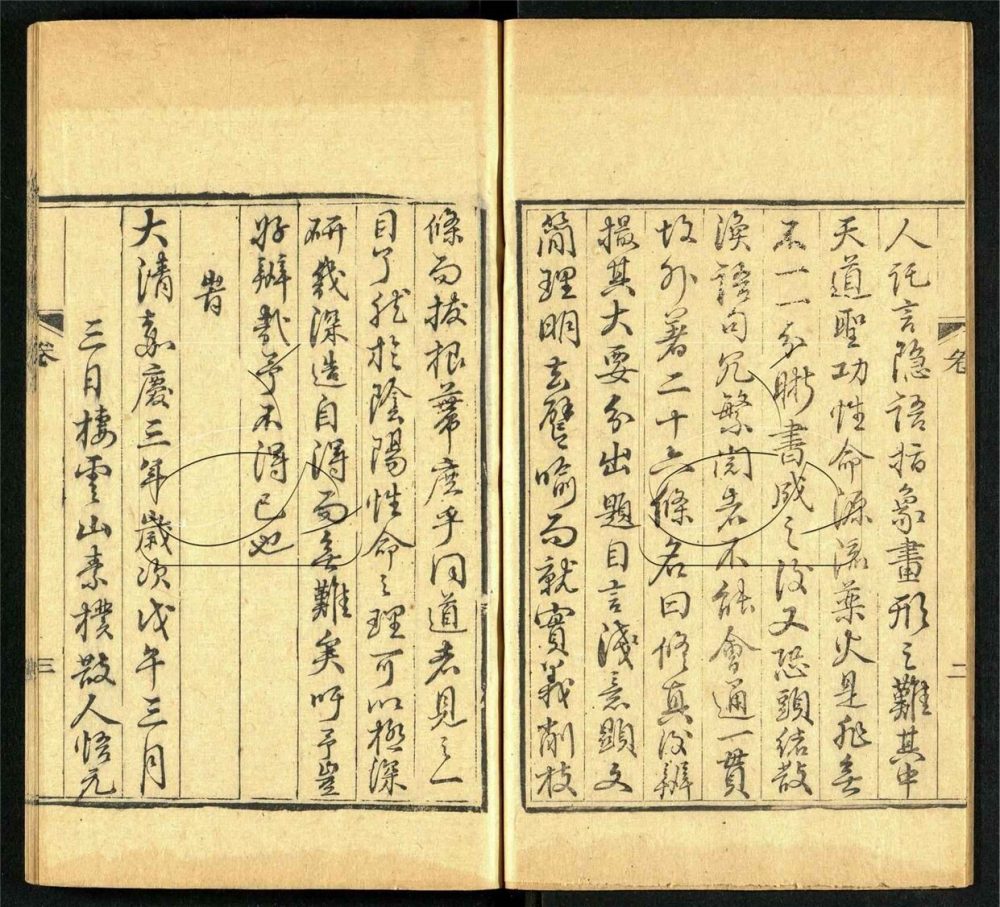 卷
二
人託言隐語指象畫形之難其中
天道聖功性命源流藥火是非無
不一一分晰書成之後又恐頭緒散
渙語句冗繁閱者不能會通一貫
故外著二十六條名曰修真後辨
撮其大要分出題目言淺意顯文
簡理明去譬喻而就實義削枝
條而拔根蒂庶乎同道者見之一
目了然於陰陽性命之理可以極深
研幾深造自得而無難矣吁予豈
好辨哉予不得已也
旹
大清嘉慶三年歲次戊午三月
三日棲雲山素樸散人悟元
卷
三